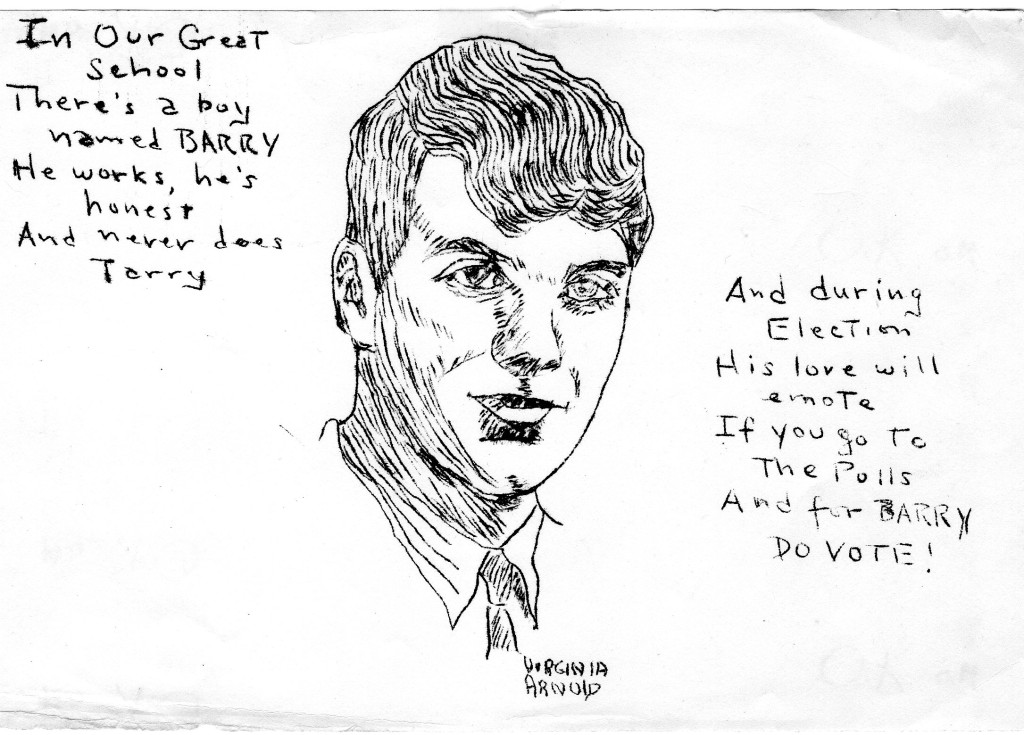 In Our Great
School
There's a boy
named BARRY
He works, he's
honest
And never does
Tarry
And during
Election
His love will
emote
If you go to
The Polls
And for BARRY
DO VOTE!
VIRGINIA
ARNOLD